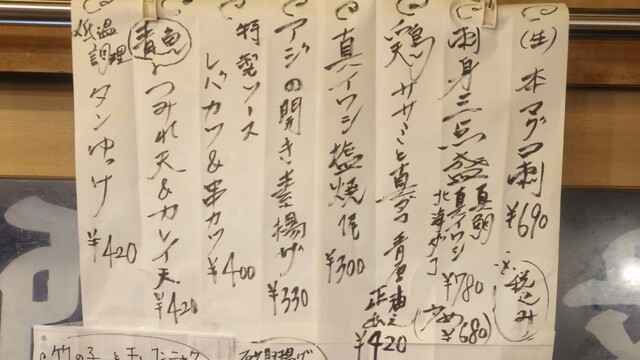 (生)本マグロ刺 ¥690
※税込み
刺身三点盛 真鯛
真イワシ
北海ダコ
¥780
(少なめ ¥680)
鶏天 ササミと真ダコ 青唐油
あえ
¥420
真イワシ塩焼 1尾 ¥300
アジの開き素揚げ ¥330
特製ソース
レバカツ&串カツ ¥400
青魚 つみれ天&カレイ天 ¥420
低温調理
タンゆけ ¥420
竹の子と
砂肝揚げ